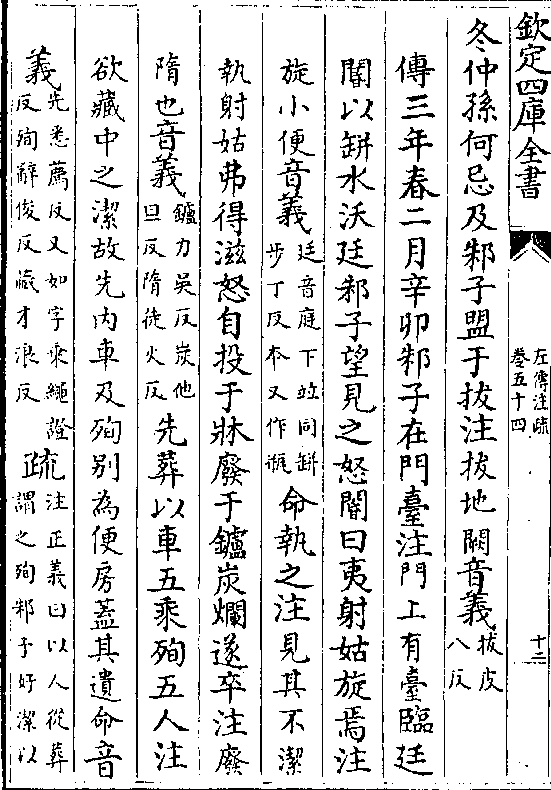 欽定四庫全書
左傳注疏
卷五十四
十二
冬仲孫何忌及邾子盟于拔注拔地闕音義拔皮
八反
傳三年春二月辛卯邾子在門臺注門上有臺臨廷
閽以缾水沃廷邾子望見之怒閽曰夷射姑旋焉注
旋小便音義廷音庭下竝同缾
步丁反本又作瓶命執之注見其不潔
執射姑弗得滋怒自投于牀廢于鑪炭爛遂卒注廢
隋也音義鑪力吳反炭他
旦反隋徒火反先葬以車五乘殉五人注
欲藏中之潔故先內車及殉别為便房蓋其遺命音
義先悉薦反又如字乘繩證
反殉辭俊反藏才浪反疏注正義曰以人從葬
謂之殉邾子好潔以